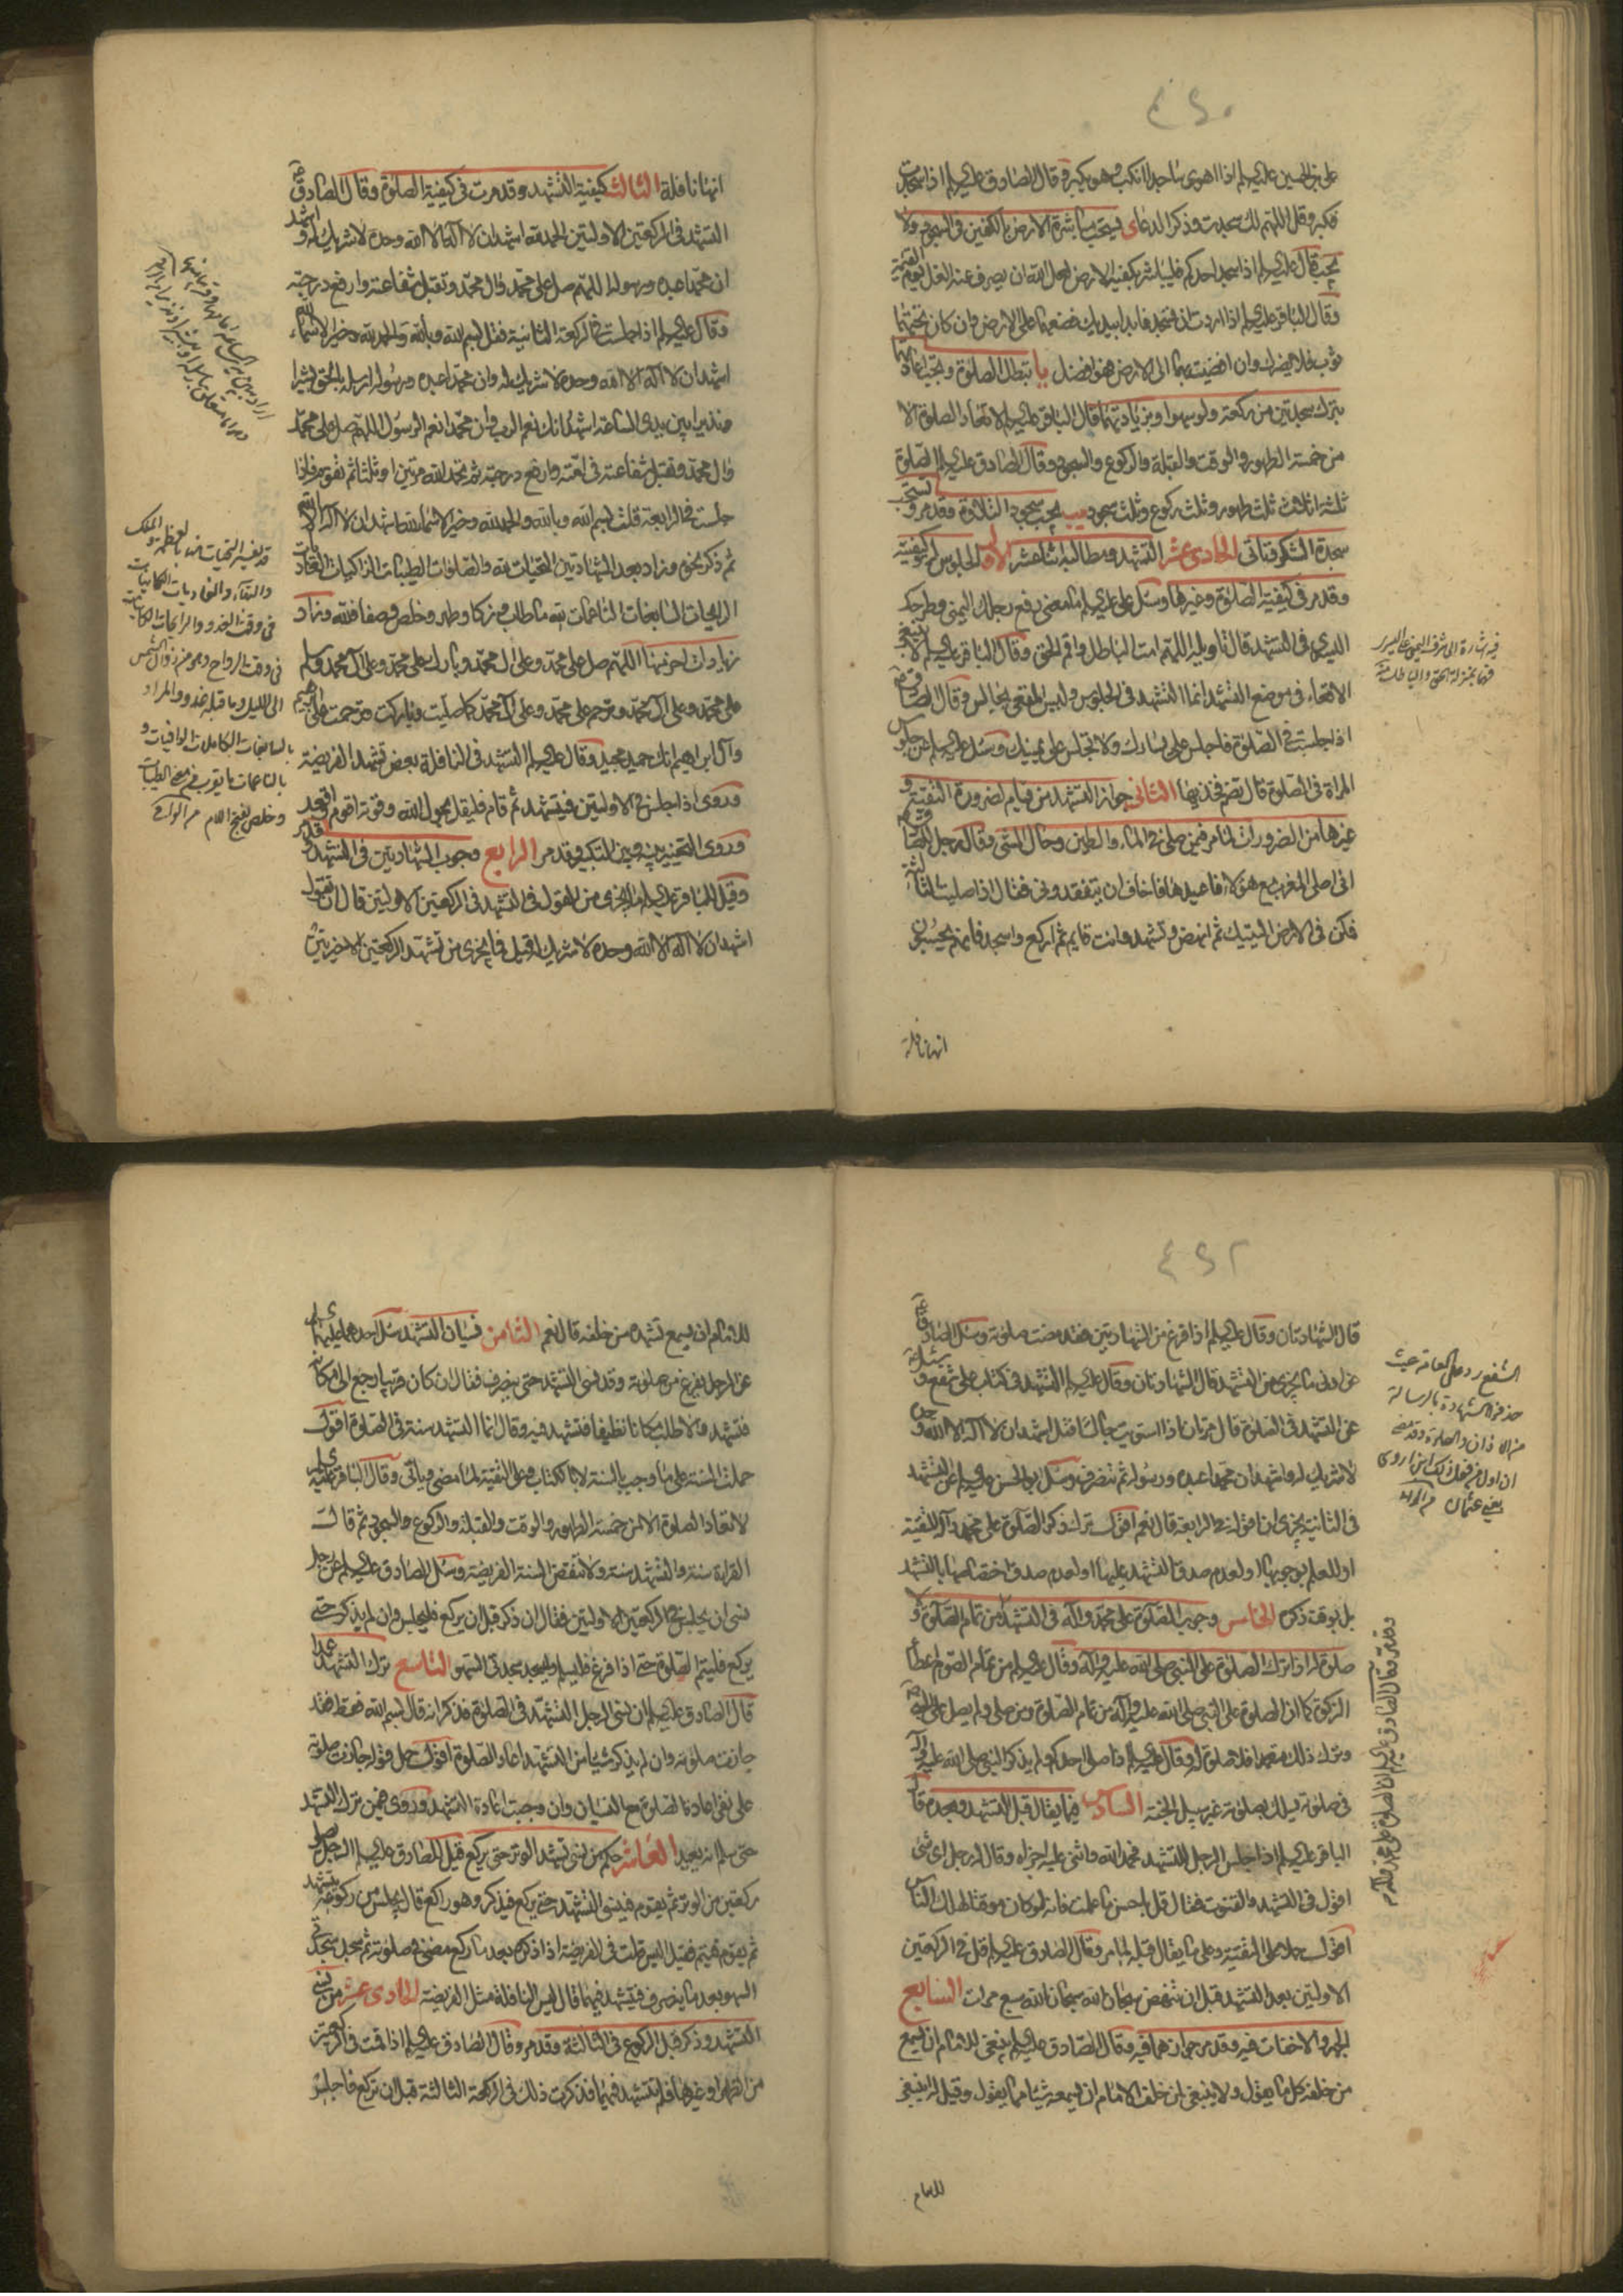 ٤٢٠
على بن الحسين عليه السلم اذا اهوى ساجدا انكب وهو يكبر وقال الصادق عليه السلم اذا سجدت
فكبر وقل اللهم لك سجدت وذكر الدعاء يستحب مباشرة الارض بالكفين في السجود ولا
يجب قال عليه السلم اذا سجد احدكم فليباشر بكفيه الارض لعل الله ان يصرف عنه الغل يوم القيمة
وقال الباقر عليه السلم اذا اردت ان تسجد فابدا بيديك فضعهما على الارض وان كان تحتهما
ثوب فلا يضرك وان افضيت بهما الى الارض فهو افضل يا تبطل الصلوة ويجب اعادتها
بترك سجدتين من ركعة ولو سهوا وبزيادتهما قال الباقر عليه السلم لا تعاد الصلوة الا
من خمسة الطهور والوقت والقبلة والركوع والسجود وقال الصادق عليه السلم الصلوة
ثلثة اثلاث ثلث طهور وثلث ركوع وثلث سجود يب يجب سجود التلاوة وقد مر وتستحب
سجدة الشكر وتاتي الحادي عشر التشهد ومطالبه اثنا عشر الاول الجلوس له وكيفيته
وقد مر في كيفية الصلوة وغيرها وسئل على عليه السلم ما معنى رفع رجلك اليمنى وطرحك
اليسرى في التشهد قال تاويله اللهم امت الباطل واقم الحق وقال الباقر عليه السلم لا ينبغي
الاقعاء في موضع التشهد انما التشهد في الجلوس وليس المقعي بجالس وقال الصادق
اذا جلست في الصلوة فاجلس على يسارك ولا تجلس على يمينك وسئل عليه السلم عن جلوس
المراة في الصلوة قال تضم فخذيها الثاني جواز التشهد من قيام لضرورة التقية و
غيرها من الضرورات لما مر فيمن صلى في الماء والطين وحال المشي وقال رجل للصادق
انى اصلى المغرب مع هؤلاء فاعيدها فاخاف ان يتفقدوني فقال اذا صليت الثالثة
فمكن في الارض اليتيك ثم انهض وتشهد وانت قايم ثم اركع واسجد فانهم يحسبون
انها نافلة
فيه اشارة الى شرف اليمين على اليسار
فهما بمنزلة الحق والباطل منه
انها نافلة الثالث كيفية التشهد وقد مرت في كيفية الصلوة وقال الصادق
التشهد في الركعتين الاولتين الحمد لله اشهد ان لا اله الا الله وحده لا شريك له واشهد
ان محمدا عبده ورسوله اللهم صل على محمد وال محمد وتقبل شفاعته وارفع درجته
وقال عليه السلم اذا جلست في الركعة الثانية فقل بسم الله وبالله والحمد لله وخير الاسماء لله
اشهد ان لا اله الا الله وحده لا شريك له وان محمدا عبده ورسوله ارسله بالحق بشيرا
ونذيرا بين يدى الساعة اشهد انك نعم الرب وان محمدا نعم الرسول اللهم صل على محمد
وال محمد وتقبل شفاعته في امته وارفع درجته ثم تحمد الله مرتين او ثلثا ثم تقوم فاذا
جلست في الرابعة قلت بسم الله وبالله والحمد لله وخير الاسماء لله اشهد ان لا اله الا الله
ثم ذكر نحوه وزاد بعد الشهادتين التحيات لله والصلوات الطيبات الزاكيات الغاديات
الرايحات السابغات الناعمات لله ما طاب وزكا وطهر وخلص وصفا فلله وزاد
زيادات اخر منها اللهم صل على محمد وعلى ال محمد وبارك على محمد وعلى ال محمد وسلم
على محمد وعلى ال محمد وترحم على محمد وعلى ال محمد كما صليت وباركت وترحمت على ابرهيم
وال ابراهيم انك حميد مجيد وقال عليه السلم التشهد في النافلة بعض تشهد الفريضة
وروى اذا جلس في الاولتين فيتشهد ثم قام فليقل بحول الله وقوته اقوم واقعد
وروى التخيير بينه وبين التكبير وقد مر الرابع وجوب الشهادتين في التشهد وقد مر
وقيل للباقر عليه السلم ما يجزى من القول في التشهد في الركعتين الاولتين قال ان تقول
اشهد ان لا اله الا الله وحده لا شريك له قيل فما يجزى من تشهد الركعتين الاخيرتين
قد يفسر التحيات لله بالعظمة والملك
والبقاء والغاديات الكاينات
في وقت الغدو والرايحات الكاينات
في وقت الرواح وهو من زوال الشمس
الى الليل وما قبله غدو والمراد
بالسابغات الكاملات الوافيات و
بالناعمات ما يقرب من معنى الطيبات
وخلص بفتح اللام
٤٢٢
قال الشهادتان وقال عليه السلم اذا فرغ من الشهادتين فقد مضت صلوته وسئل الصادق
عن ادنى ما يجزى من التشهد قال الشهادتان وقال عليه السلم التشهد في كتاب على شفع وسئل
عن التشهد في الصلوة قال مرتان اذا استويت جالسا فقل اشهد ان لا اله الا الله وحده
لا شريك له واشهد ان محمدا عبده ورسوله ثم تنصرف وسئل ابو الحسن عليه السلم عن التشهد
في الثانية يجزى ان اقوله في الرابعة قال نعم اقول ترك ذكر الصلوة على محمد واله للتقية
او للعلم بوجوبها او لعدم صدق التشهد عليها او لعدم صدق اختصاصها بالتشهد
بل بوقت ذكره الخامس وجوب الصلوة على محمد واله في التشهد من تمام الصلوة ولا
صلوة له اذا ترك الصلوة على النبي صلى الله عليه واله وقال عليه السلم من تمام الصوم اعطاء
الزكوة كما ان الصلوة على النبي صلى الله عليه واله من تمام الصلوة ومن صلى ولم يصل على النبي
وترك ذلك متعمدا فلا صلوة له وقال عليه السلم اذا صلى احدكم ولم يذكر النبي صلى الله عليه واله
في صلوته يسلك بصلوته غير سبيل الجنة السادس فيما يقال قبل التشهد وبعده قال
الباقر عليه السلم اذا جلس الرجل للتشهد فحمد الله واثنى عليه اجزاه وقال له رجل اى شى
اقول في التشهد والقنوت فقال قل باحسن ما علمت فانه لو كان موقتا لهلك الناس
اقول حملا على التقية وعلى ما يقال قبله لما مر وقال الصادق عليه السلم قل في الركعتين
الاولتين بعد التشهد قبل ان تنهض سبحان الله سبحان الله سبع مرات السابع
الجهر والاخفات فيه وقد مر جوازهما فيه وقال الصادق عليه السلم ينبغي للامام ان يسمع
من خلفه كل ما يقول ولا ينبغي لمن خلف الامام ان يسمعه شيئا مما يقول وقيل له اينبغي
للامام
الشفع رد على العامة حيث
حذفوا الشهادة بالرسالة
من الاذان والصلوة وقد مضى
ان اول من فعل ذلك ابن اروى
يعني عثمان
للامام ان يسمع تشهده من خلفه قال نعم الثامن نسيان التشهد سئل احدهما عليهما السلم
عن الرجل يفرغ من صلوته وقد نسى التشهد حتى ينصرف فقال ان كان قريبا رجع الى مكانه
فتشهد والا طلب مكانا نظيفا فتشهد فيه وقال انما التشهد سنة في الصلوة اقول
حملت السنة على ما وجب بالسنة لا بالكتاب وعلى التقية لما مضى وياتى وقال الباقر عليه السلم
لا تعاد الصلوة الا من خمسة الطهور والوقت والقبلة والركوع والسجود ثم قال
القراءة سنة والتشهد سنة ولا تنقض السنة الفريضة وسئل الصادق عليه السلم عن رجل
نسى ان يجلس في الركعتين الاولتين فقال ان ذكر قبل ان يركع فليجلس وان لم يذكر حتى
يركع فليتم الصلوة حتى اذا فرغ فليسلم وليسجد سجدتى السهو التاسع ترك التشهد عمدا
قال الصادق عليه السلم ان نسى الرجل التشهد في الصلوة فذكر انه قال بسم الله فقط فقد
جازت صلوته وان لم يذكر شيئا من التشهد اعاد الصلوة اقول حمل قوله جازت صلوته
على نفى اعادة الصلوة مع النسيان وان وجبت اعادة التشهد وروى فيمن ترك التشهد
حتى سلم انه يعيد العاشر حكم من نسى تشهد الوتر حتى يركع قيل للصادق عليه السلم الرجل يصلى
ركعتين من الوتر ثم يقوم فينسى التشهد حتى يركع فيذكر وهو راكع قال يجلس من ركوعه فيتشهد
ثم يقوم فيتم فقيل اليس قلت في الفريضة اذا ذكره بعد ما ركع مضى في صلوته ثم سجد سجدتى
السهو بعد ما ينصرف فتشهد فيهما قال ليس النافلة مثل الفريضة الحادي عشر من نسى
التشهد وذكر قبل الركوع في الثالثة وقد مر وقال الصادق عليه السلم اذا قمت في الركعتين
من الظهر او غيرها فلم تتشهد فيهما فذكرت ذلك في الركعة الثالثة قبل ان تركع فاجلس